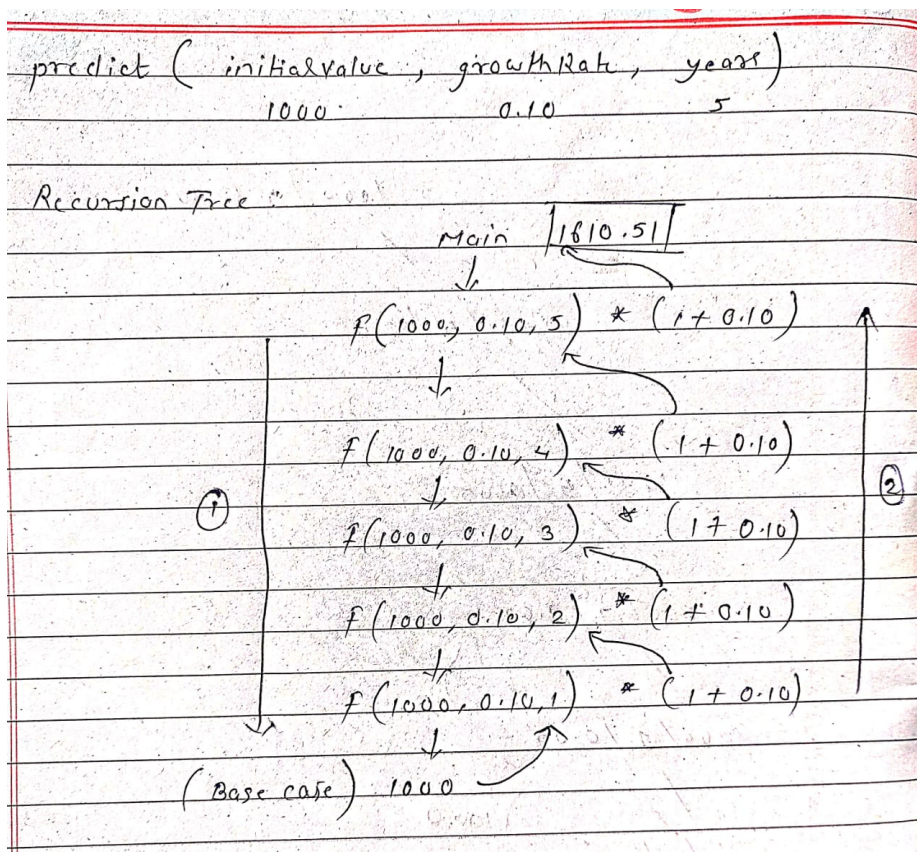 predict ( initialvalue , growthRate , years )
1000 0.10 5
Recursion Tree :
Main 1610.51
f(1000, 0.10, 5) * (1 + 0.10)
f(1000, 0.10, 4) * (1 + 0.10)
① ②
f(1000, 0.10, 3) * (1 + 0.10)
f(1000, 0.10, 2) * (1 + 0.10)
f(1000, 0.10, 1) * (1 + 0.10)
(Base case) 1000